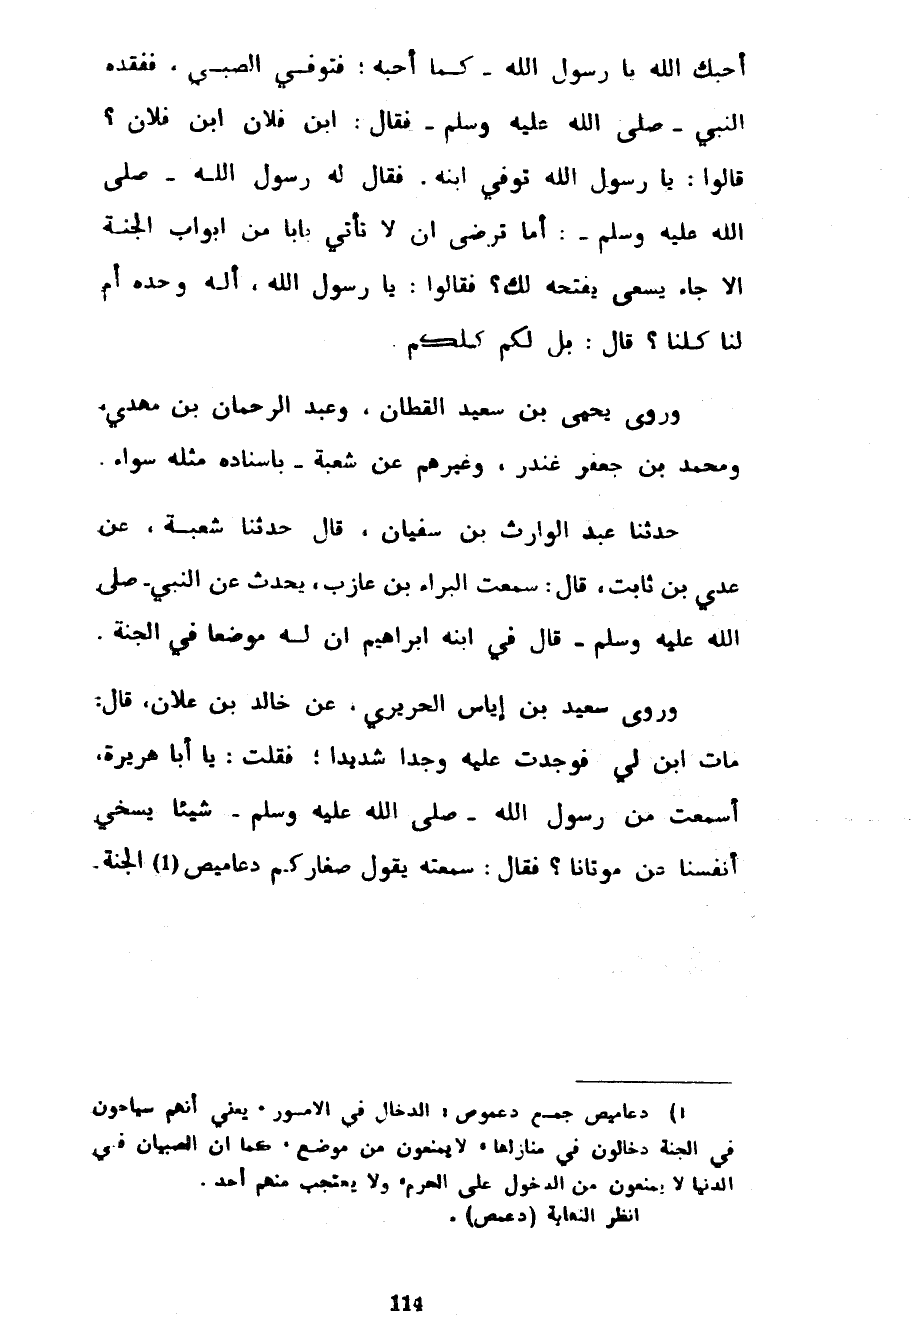 أحبك الله يا رسول الله ـ كـما أحبه : فتوفـي الصبـي ، ففقده
النبي ـ صلى الله عليه وسلم ـ فقال : ابن فلان ابن فلان ؟
قالوا : يا رسول الله توفي ابنه . فقال له رسول اللـه ـ صلى
الله عليه وسلم ـ : أما ترضى ان لا تأتي بابا من ابواب الجنـة
الا جاء يسعى يفتحه لك؟ فقالوا : يا رسول الله ، ألـه وحده أم
لنا كـلنا ؟ قال : بل لكم كـلـكم .
وروى يحيى بن سعيد القطان ، وعبد الرحمان بن مهدي،
ومحمد بن جعفر غندر ، وغيرهم عن شعبة ـ باسناده مثله سواء .
حدثنا عبد الوارث بن سفيان ، قال حدثنا شعبـة ، عن
عدي بن ثابت، قال : سمعت البراء بن عازب، يحدث عن النبي ـ صلى
الله عليه وسلم ـ قال في ابنه ابراهيم ان لـه موضعا في الجنة .
وروى سعيد بن إياس الحريري ، عن خالد بن علان، قال:
مات ابن لي فوجدت عليه وجدا شديدا ؛ فقلت : يا أبا هريرة،
أسمعت من رسول الله ـ صلى الله عليه وسلم ـ شيئا يسخي
أنفسنا من موتانا ؟ فقال : سمعته يقول صغاركـم دعاميص (1) الجنة ـ
1) دعاميص جمـع دعموص : الدخال في الامـور ، يعني أنهم سياحون
في الجنة دخالون في منازلها ، لا يمنعون من موضـع ، كما ان الصبيان فـي
الدنيا لا يمنعون من الدخول على الحرم، ولا يحتجب منهم أحد .
انظر النهاية (دعمص) .
114